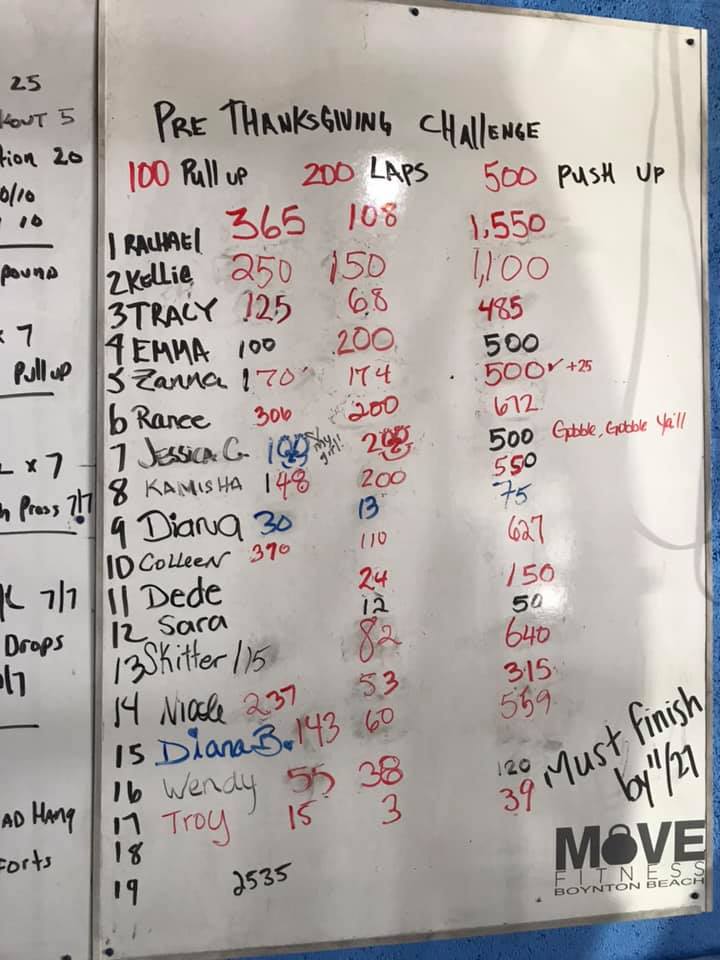 25
KOUT 5
tion 20
0/10
10
POUND
x 7
Pull up
L x 7
h Press 7/7
7/7
Drops
/7
AD HANG
forts
PRE THANKSGIVING CHALLENGE
100 Pull up 200 LAPS 500 PUSH UP
1 RACHAEL 365 108 1,550
2 Kellie 250 150 1,100
3 TRACY 125 68 485
4 EMMA 100 200 500
5 Zanna 170 174 500 ✓ +25
6 Ranee 306 200 672
7 Jessica G. 100 my girl! 200 500 Gobble, Gobble Ya'll
8 KAMISHA 148 200 550
9 Diana 30 13 75
10 Colleen 370 110 627
11 Dede 24 150
12 Sara 12 50
13 Skitter 115 82 640
14 Nicole 237 53 315
15 Diana B. 143 60 559
16 Wendy 55 38 120
17 Troy 15 3 39
18
19 2535
Must finish
by 11/27
MOVE
FITNESS
BOYNTON BEACH